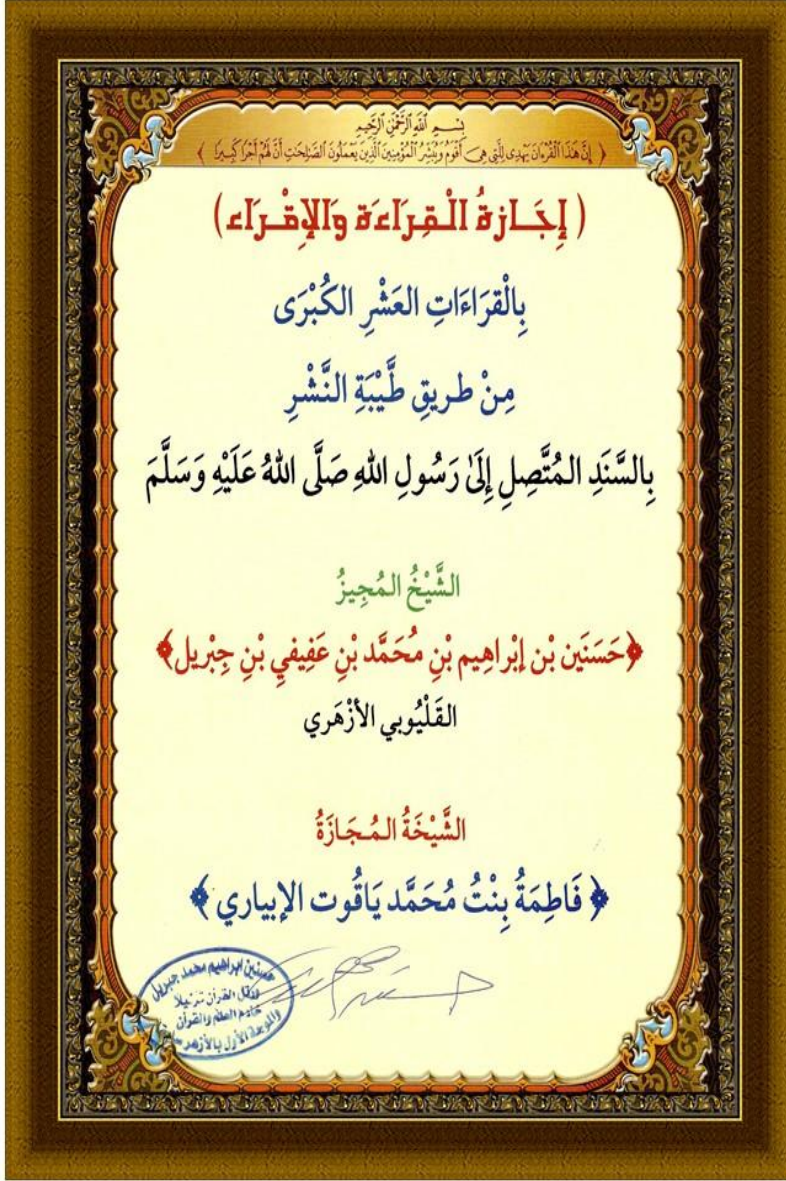 بِسْمِ ٱللَّهِ ٱلرَّحْمَٰنِ ٱلرَّحِيمِ
﴿ إِنَّ هَٰذَا ٱلْقُرْءَانَ يَهْدِى لِلَّتِى هِىَ أَقْوَمُ وَيُبَشِّرُ ٱلْمُؤْمِنِينَ ٱلَّذِينَ يَعْمَلُونَ ٱلصَّٰلِحَٰتِ أَنَّ لَهُمْ أَجْرًا كَبِيرًا ﴾
( إِجَازةُ الْقِرَاءَة وَالإِقْرَاء )
بِالْقرَاءَاتِ العَشْرِ الكُبْرَى
مِنْ طريقِ طَّيْبَةِ النَّشْرِ
بِالسَّنَدِ المُتَّصِلِ إِلَىٰ رَسُولِ اللهِ صَلَّى اللهُ عَلَيْهِ وَسَلَّمَ
الشَّيْخُ المُجِيزُ
﴿حَسَنَين بْن إِبْراهِيم بْنِ مُحَمَّد بْنِ عَفِيفيِ بْنِ جِبْريل﴾
القَلْيُوبي الأزْهَري
الشَّيْخَةُ المُجَازَةُ
﴿ فَاطِمَةُ بِنْتُ مُحَمَّد يَاقُوت الإبياري ﴾
حسنين ابراهيم محمد جبريل
القرآن ترتيلاً
خادم العلم والقرآن
الأول بالأزهر